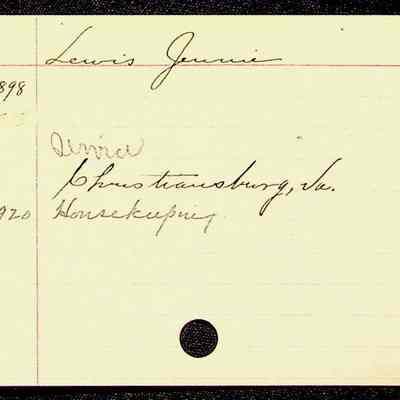 Lewis Jennie
898
Service
Christiansburg, Va.
920 Housekeeping